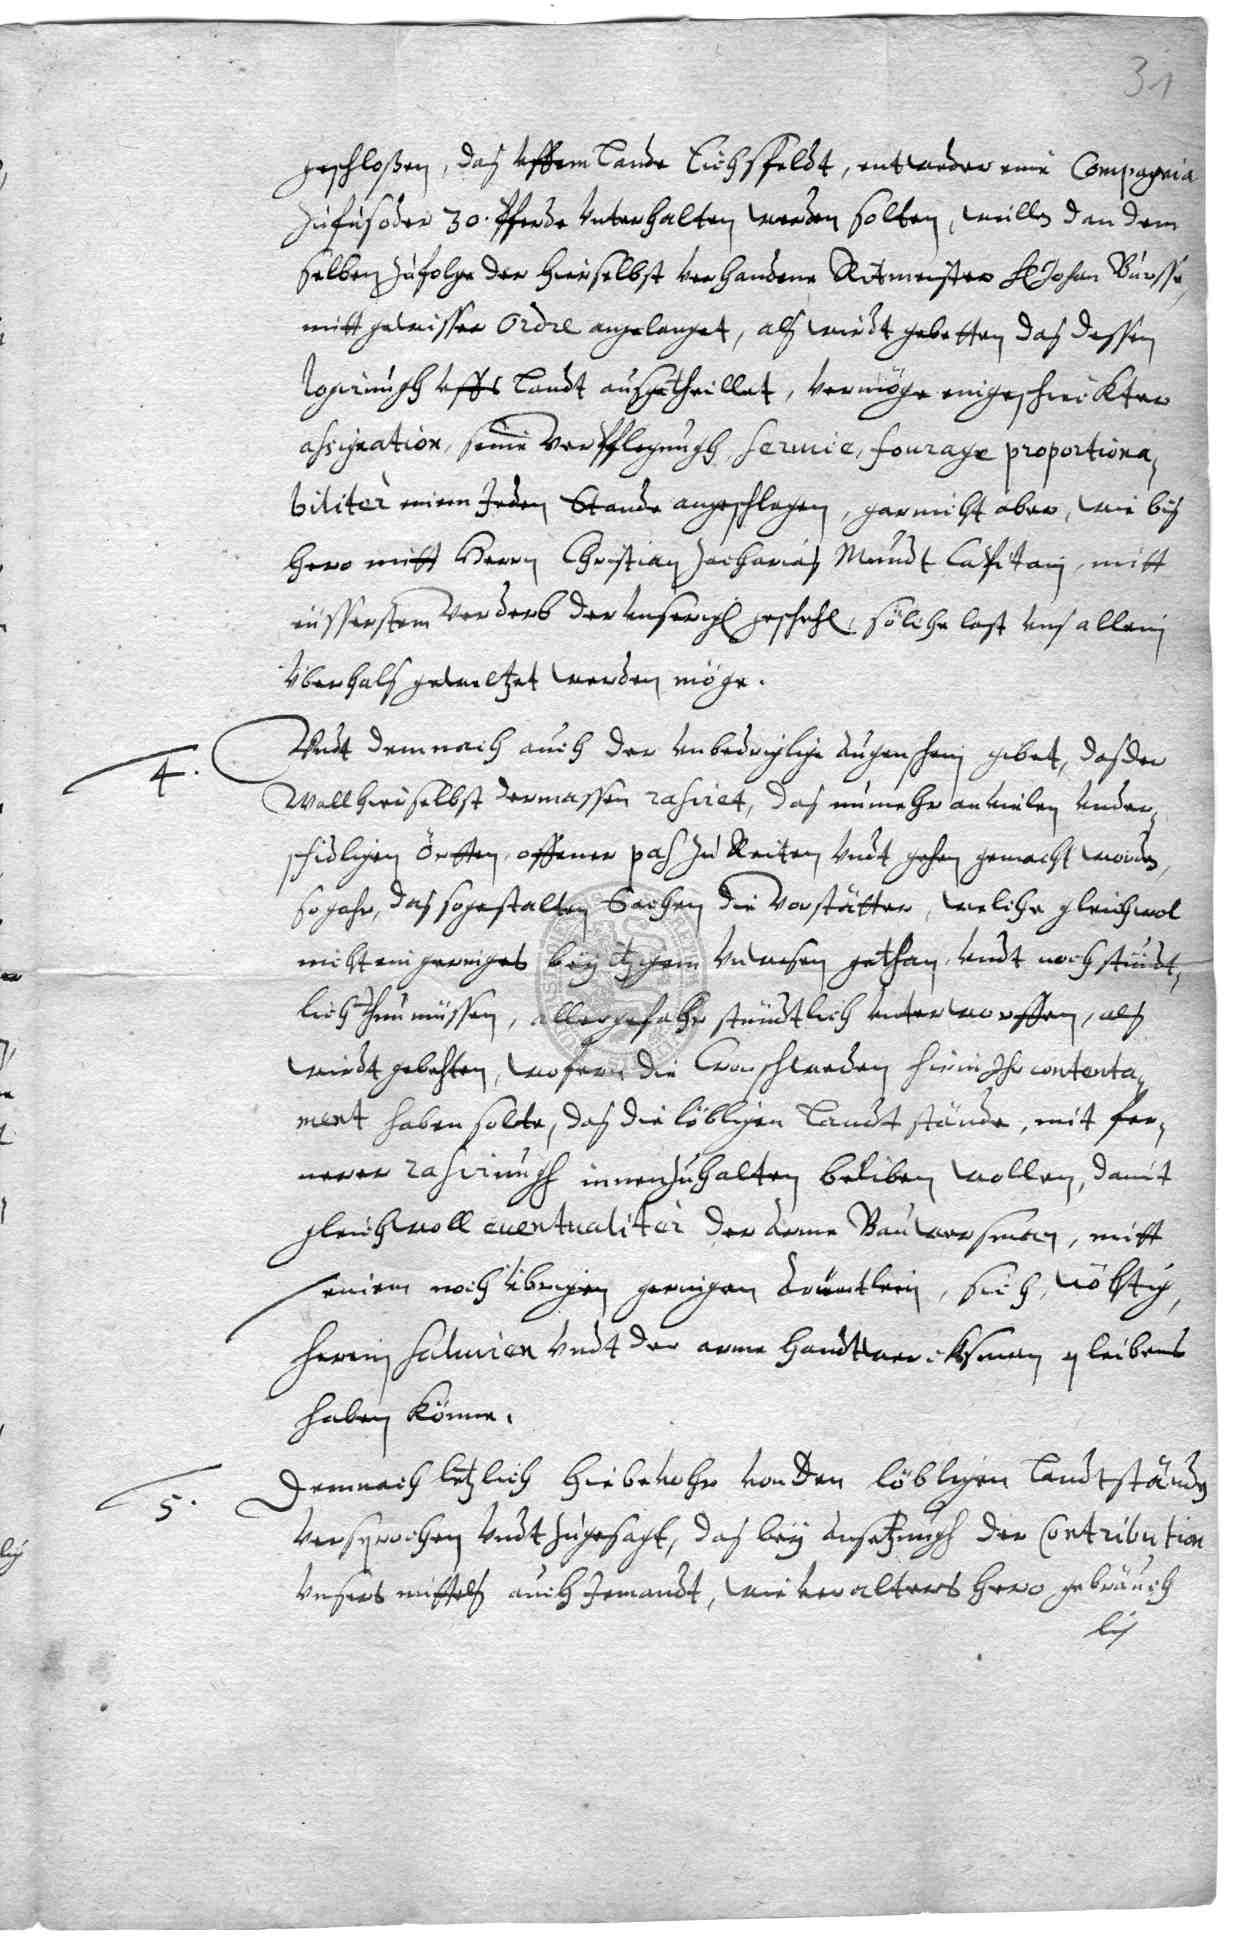 31
geschloßen, das vffem Lande Eichsfeldt, entweder eine Compagnia
zu fus oder 30. Pferde vnterhalten werden solten, weilln dan dem
selben zufolge der hierselbst verhandene Ritmeister H Johan Bursse,
mitt gewisser Ordre angelanget, alß wirdt gebetten das dessen
logirungh vffs Landt außgetheillet, vermöge eingeschickter
assignation, seine Verpflegungh, servis, fourage proportiona¬
biliter einem Jeden Stande angeschlagen, gar nicht aber, wie biß
hero mitt Herrn Christian Zacharias Mundt Capitain, mitt
eüsserstem Verderb der vnserigl geschehl, solche last vns allein
vberhals geweltzet werden möge.
4. Vndt demnach auch der vnbedriglige Augenschein gibet, das der
Wall hierselbst dermassen rasiret, das nunmehr an vielen vnder¬
schidligen Örtten, offener paß zu Reiten vndt gehen gemacht worden,
so gahr, das sogestalten Sachen die Vorstätter, welche gleichwol
nicht ein geringes bey itzigem vnwesen gethan, vndt noch stündt¬
lich thun müssen, aller gefahr stündtlich vnterworffen, alß
wirdt gebehten, wofern die Cron Schweden hierin Ihr contenta¬
ment haben solte, das die löbligen Landt stände, mit fer¬
nerer rasirungh innenzuhalten beliben wollen, damit
gleichwoll eventualiter der Arme Bauwersman, mitt
seinem noch übrigen geringen Armutlein, sich nöhtig,
herein salviren vndt der arme Handtwercksman pleibens
haben könne.
5. Demnach letzlich hiebevohr von den löbligen Landtständen
versprochen vndt zugesagt, das bey Ansetzungh der Contribution
vnsers mittels auch Jemandt, wie vor alters hero gebräuch
lich